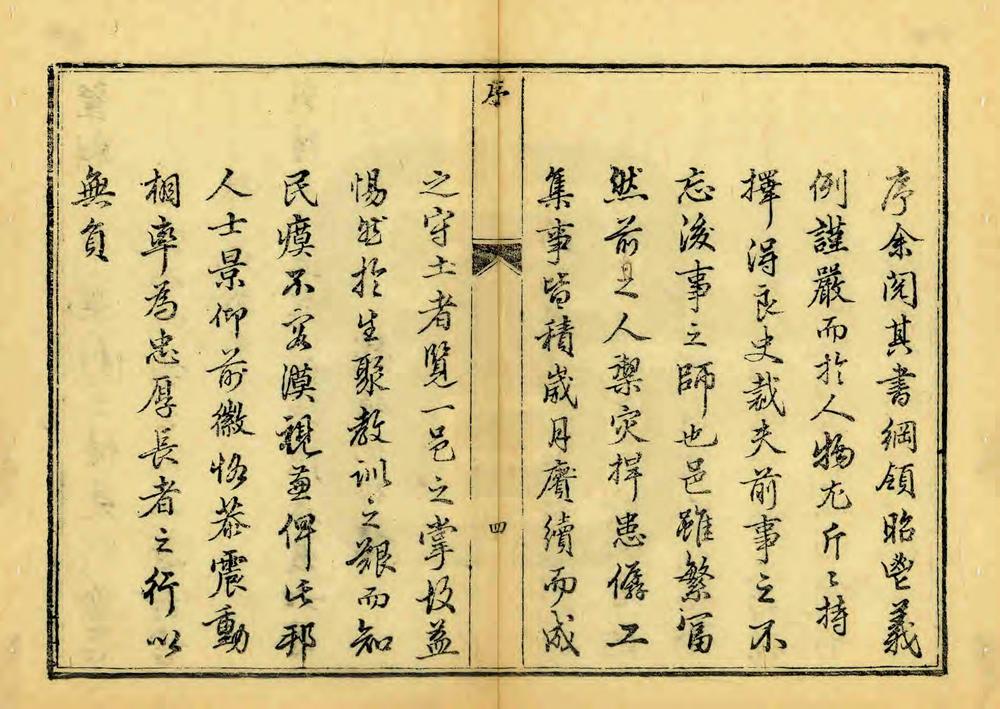 序余閱其書綱領昭鬯義
例謹嚴而於人物尤斤〻持
擇得良史裁夫前事之不
忘後事之師也邑雖繁富
然前之人禦灾捍患僝工
集事皆積歲月賡續而成
序
四
之守土者覽一邑之掌故益
惕然於生聚教訓之艱而知
民瘼不容漠視俾此邦
人士景仰前徽恪恭震動
相率為忠厚長者之行以
無負